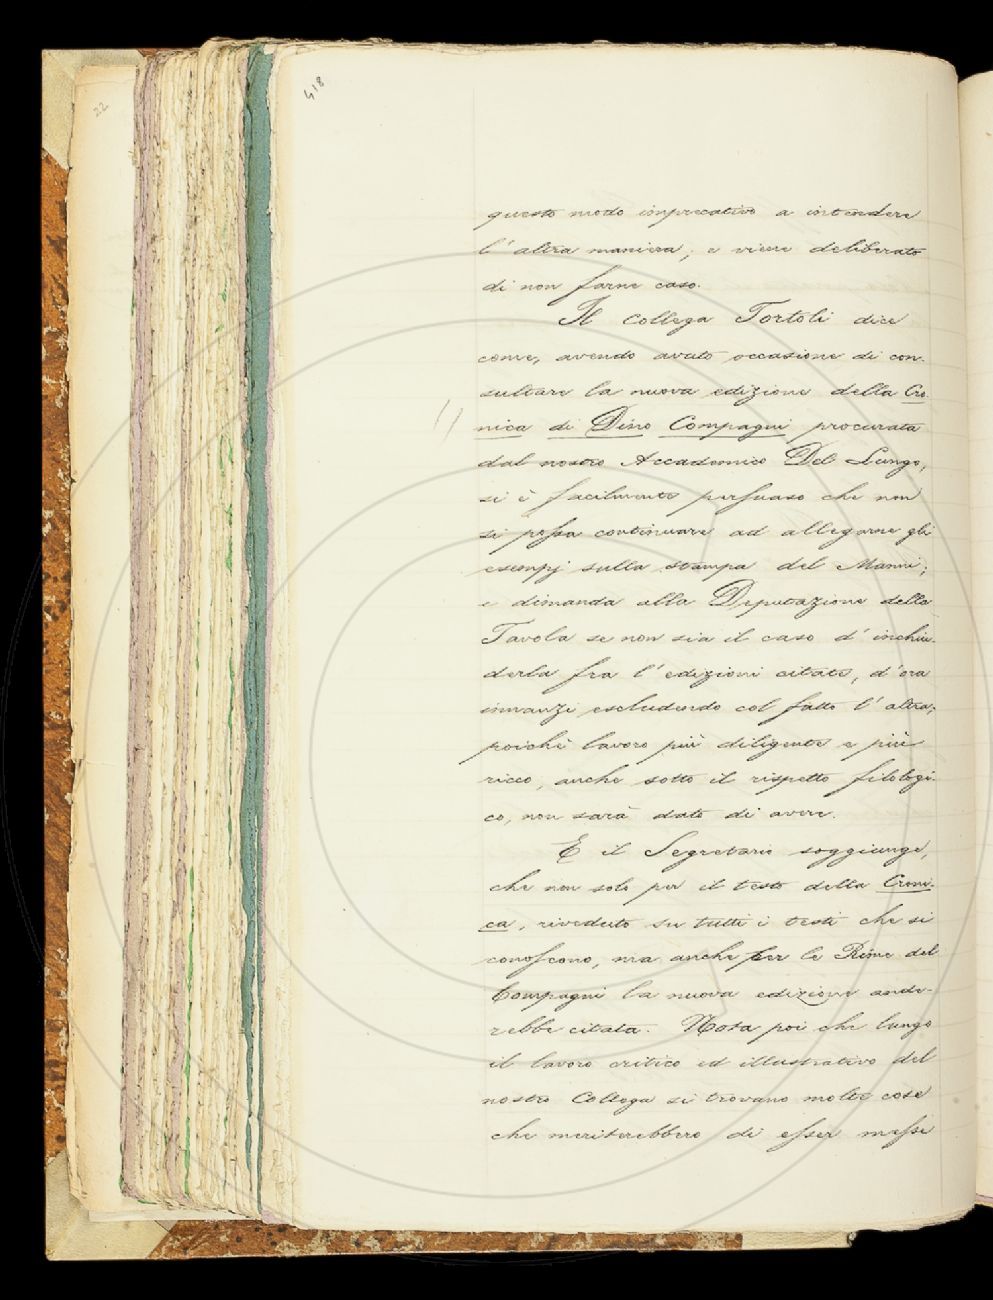 22
418
questo modo imprecativo a intendere
l'altra maniera; e viene deliberato
di non farne caso.
Il Collega Tortoli dice
come, avendo avuto occasione di con-
sultare la nuova edizione della Cro
nica di Dino Compagni procurata
dal nostro Accademico Del Lungo,
si è facilmente persuaso che non
si possa continuare ad allegarne gli
esempj sulla stampa del Manni;
e dimanda alla Deputazione della
Tavola se non sia il caso d'inchiu-
derla fra l'edizioni citate, d'ora
innanzi escludendo col fatto l'altra;
poichè lavoro più diligente e più
ricco, anche sotto il rispetto filologi-
co, non sarà dato di avere.
E il Segretario soggiunge,
che non solo per il testo della Croni-
ca, riveduto su tutti i testi che si
conoscono, ma anche per le Rime del
Compagni la nuova edizione ande-
rebbe citata. Nota poi che lungo
il lavoro critico ed illustrativo del
nostro Collega si trovano molte cose
che meriterebbero di esser messe